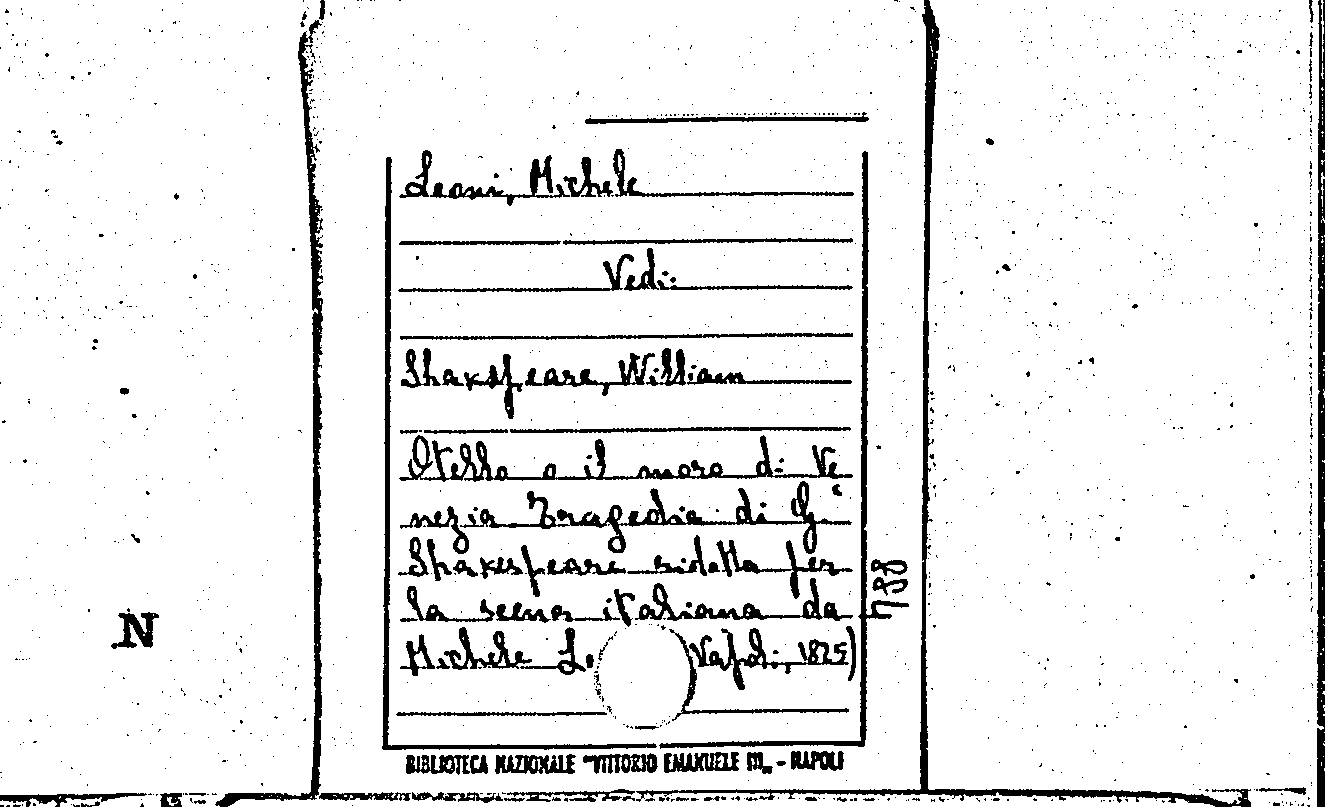 Leoni, Michele
Vedi:
Shakespeare, William
Otello o il moro di Ve
nezia. Tragedia di G.
Shakespeare ridotta per
la scena italiana da
Michele Le Napoli, 1825)
BIBLIOTECA NAZIONALE "VITTORIO EMANUELE III" - NAPOLI
N
788